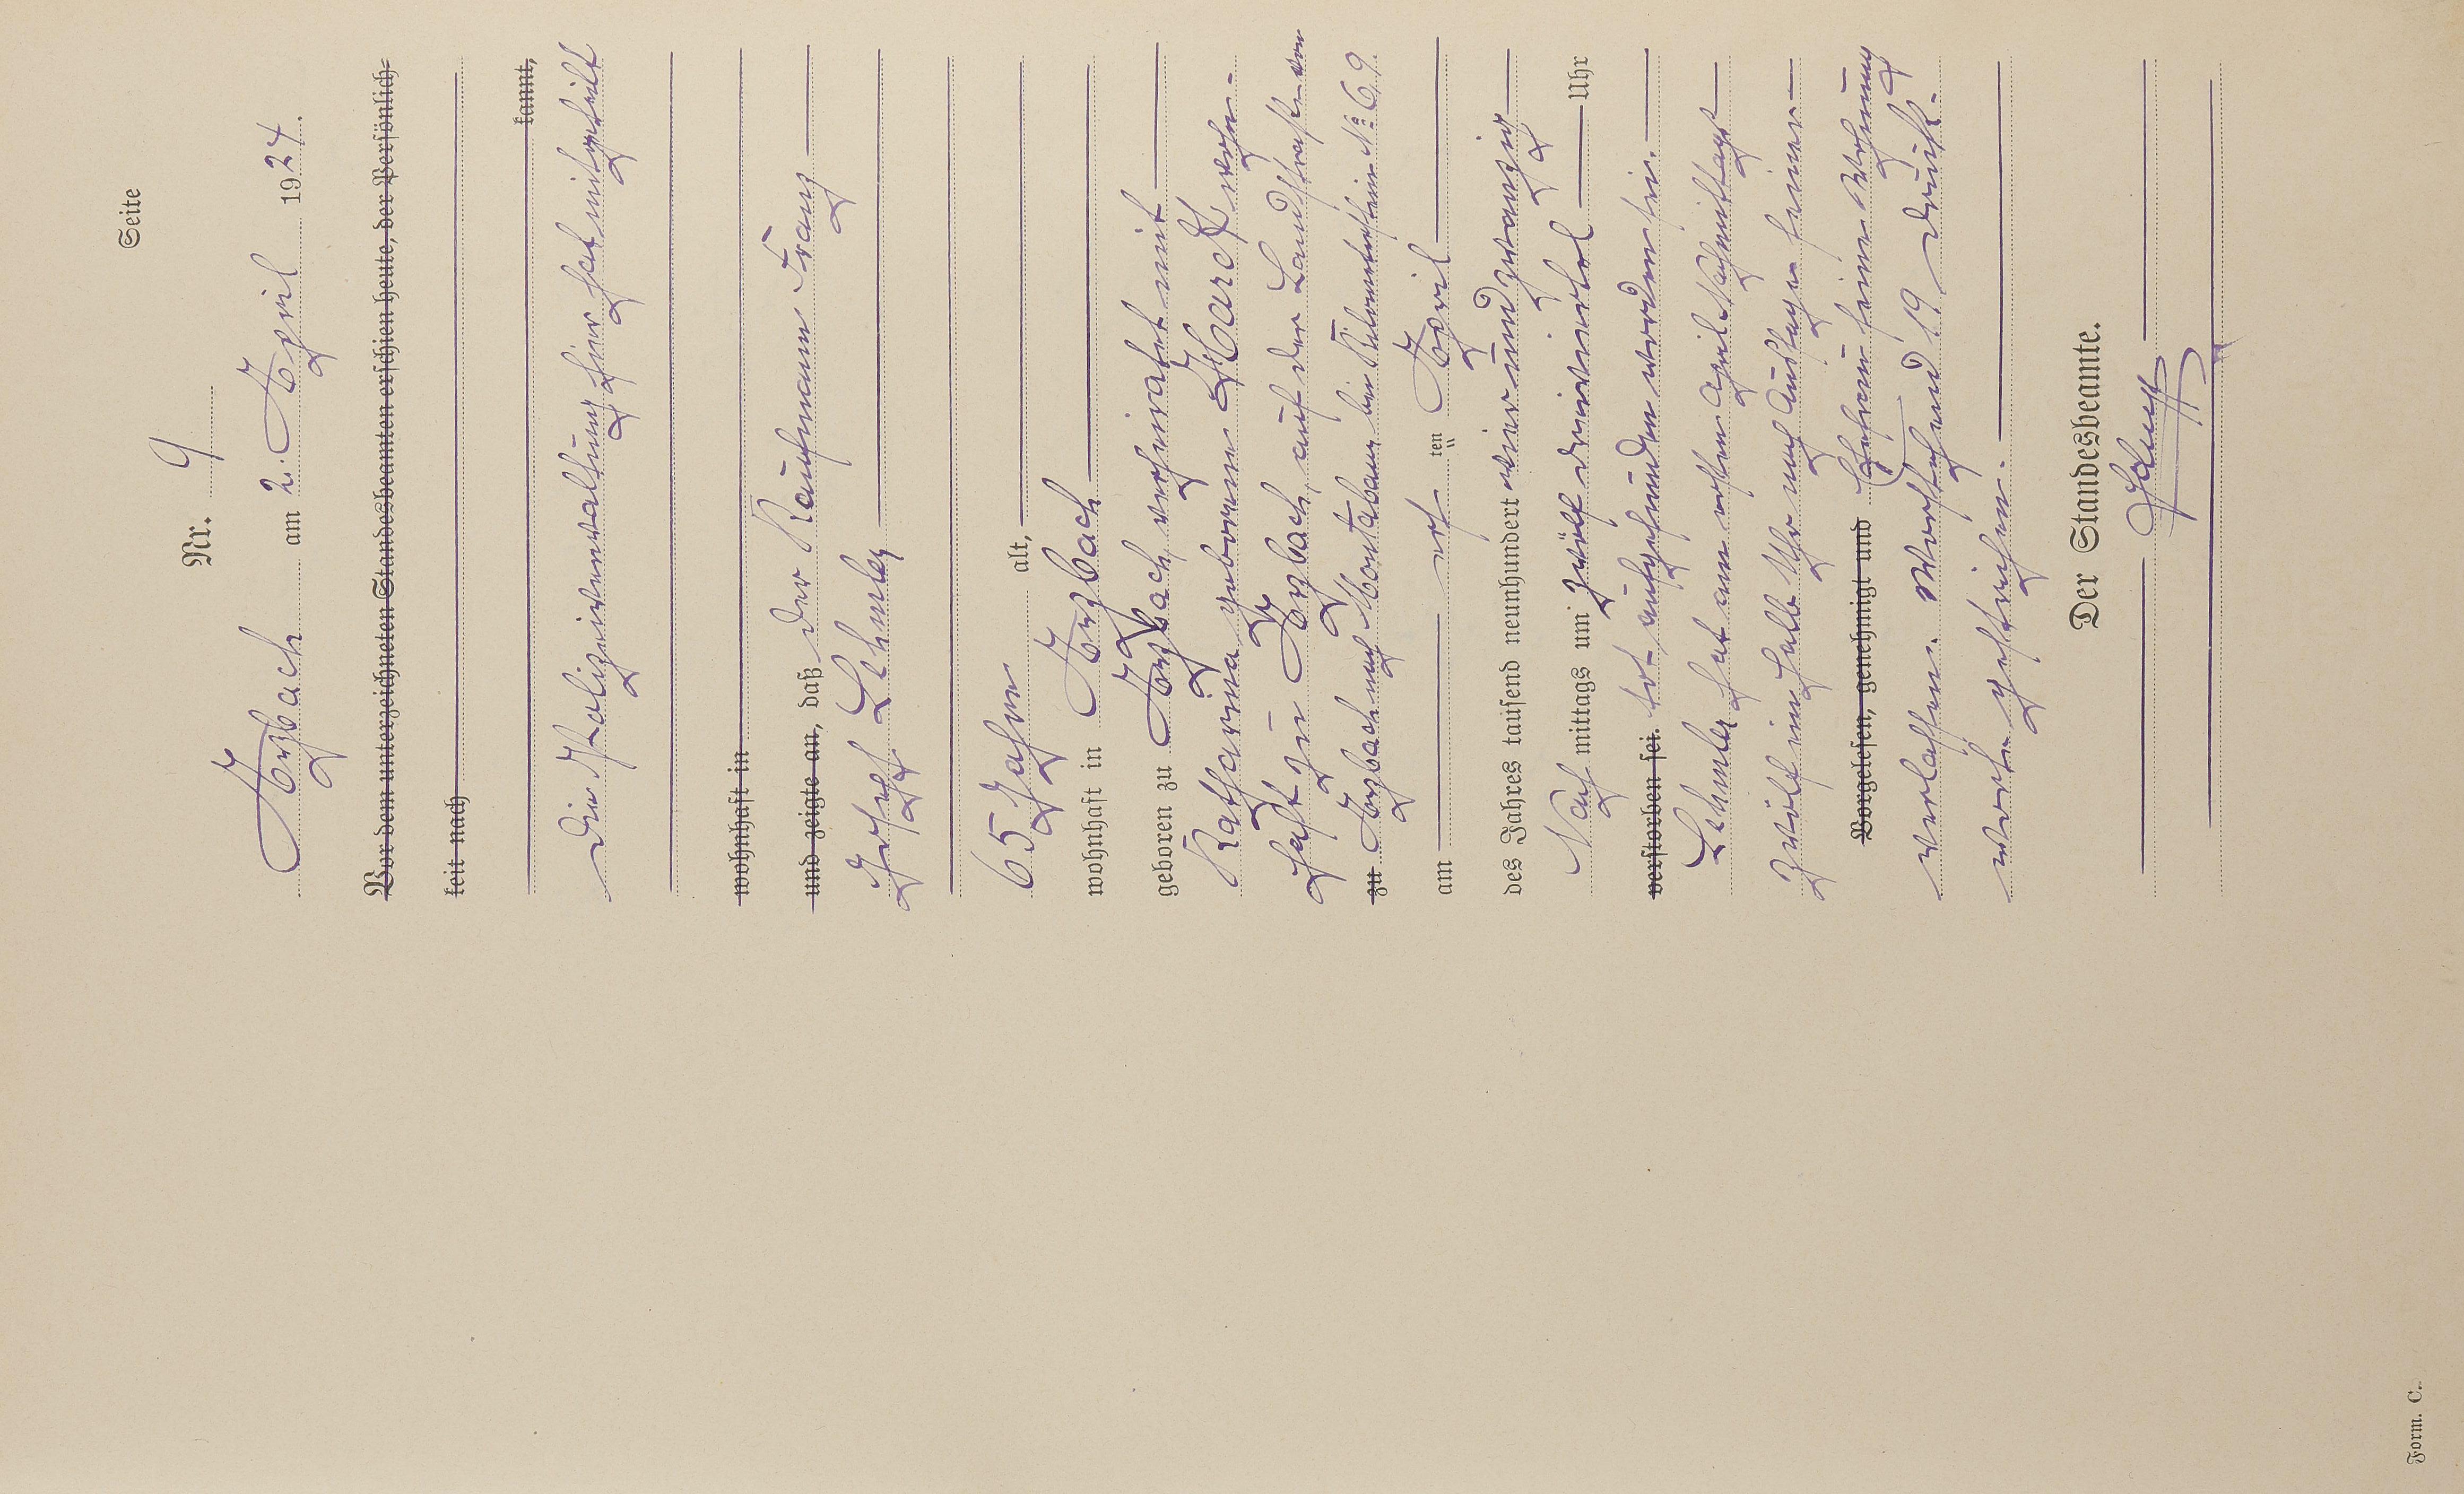 Seite
Nr. 9
Arzbach am 2. April 1924.
Vor dem unterzeichneten Standesbeamten erschien heute, der Persönlich-
keit nach
kannt,
Die Polizeiverwaltung hier hat mitgeteilt
wohnhaft in
und zeigte an, daß der Kaufmann Franz
Josef Lehmler
65 Jahre alt,
wohnhaft in Arzbach
geboren zu Arzbach, verheiratet mit
Katharina geborene wohn-
haft zu Arzbach, auf der Landstraße von
zu Arzbach nach Montabaur bei Kilometerstein No 6,9.
am ersten April
des Jahres tausend neunhundert vierundzwanzig
Nach mittags um zwölf dreiviertel Uhr
verstorben sei. tot aufgefunden worden sei.
Lehmler hat am ersten April Nachmittags
zwölf ein halb Uhr nach Aussage seiner
Vorgelesen, genehmigt und Ehefrau seine Wohnung
verlassen. Vorstehend 19 Druck-
worte gestrichen.
Der Standesbeamte.
Form. C.